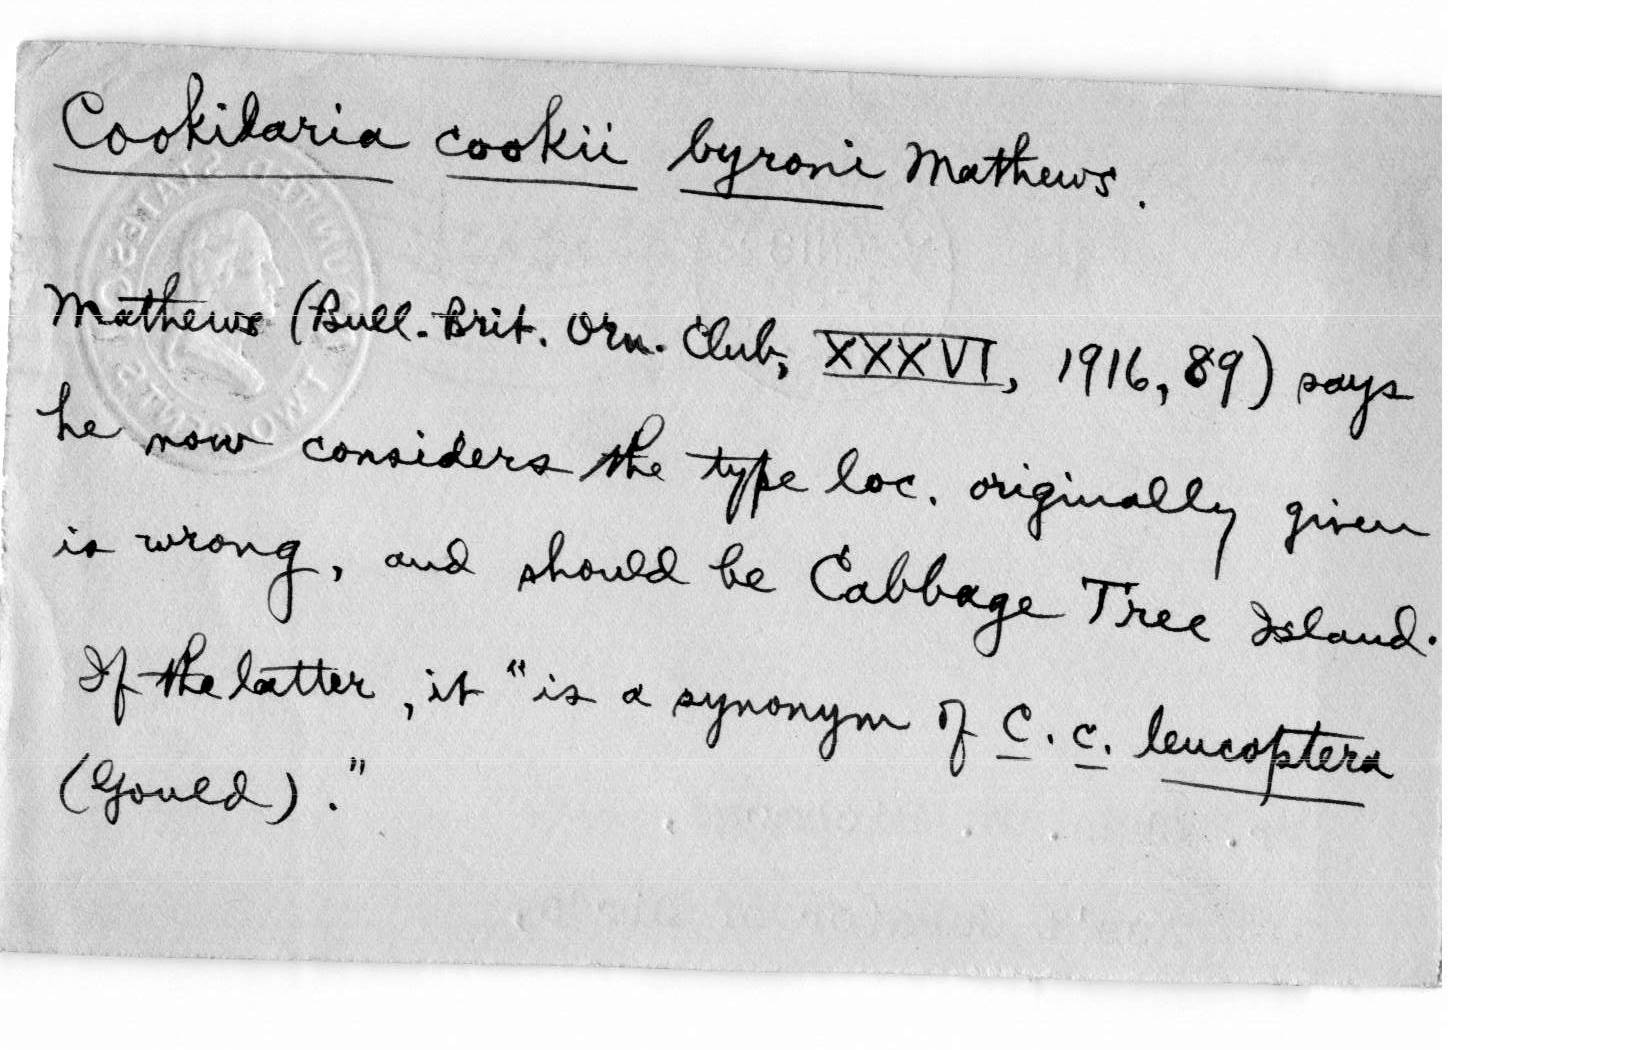 Cookilaria cookii byroni Mathews.
Mathews (Bull. Brit. Orn. Club, XXXVI, 1916, 89) says
he now considers the type loc. originally given
is wrong, and should be Cabbage Tree Island.
If the latter, it "is a synonym of C. c. leucoptera
(Gould)."
UNITED STATES
TWO CENTS